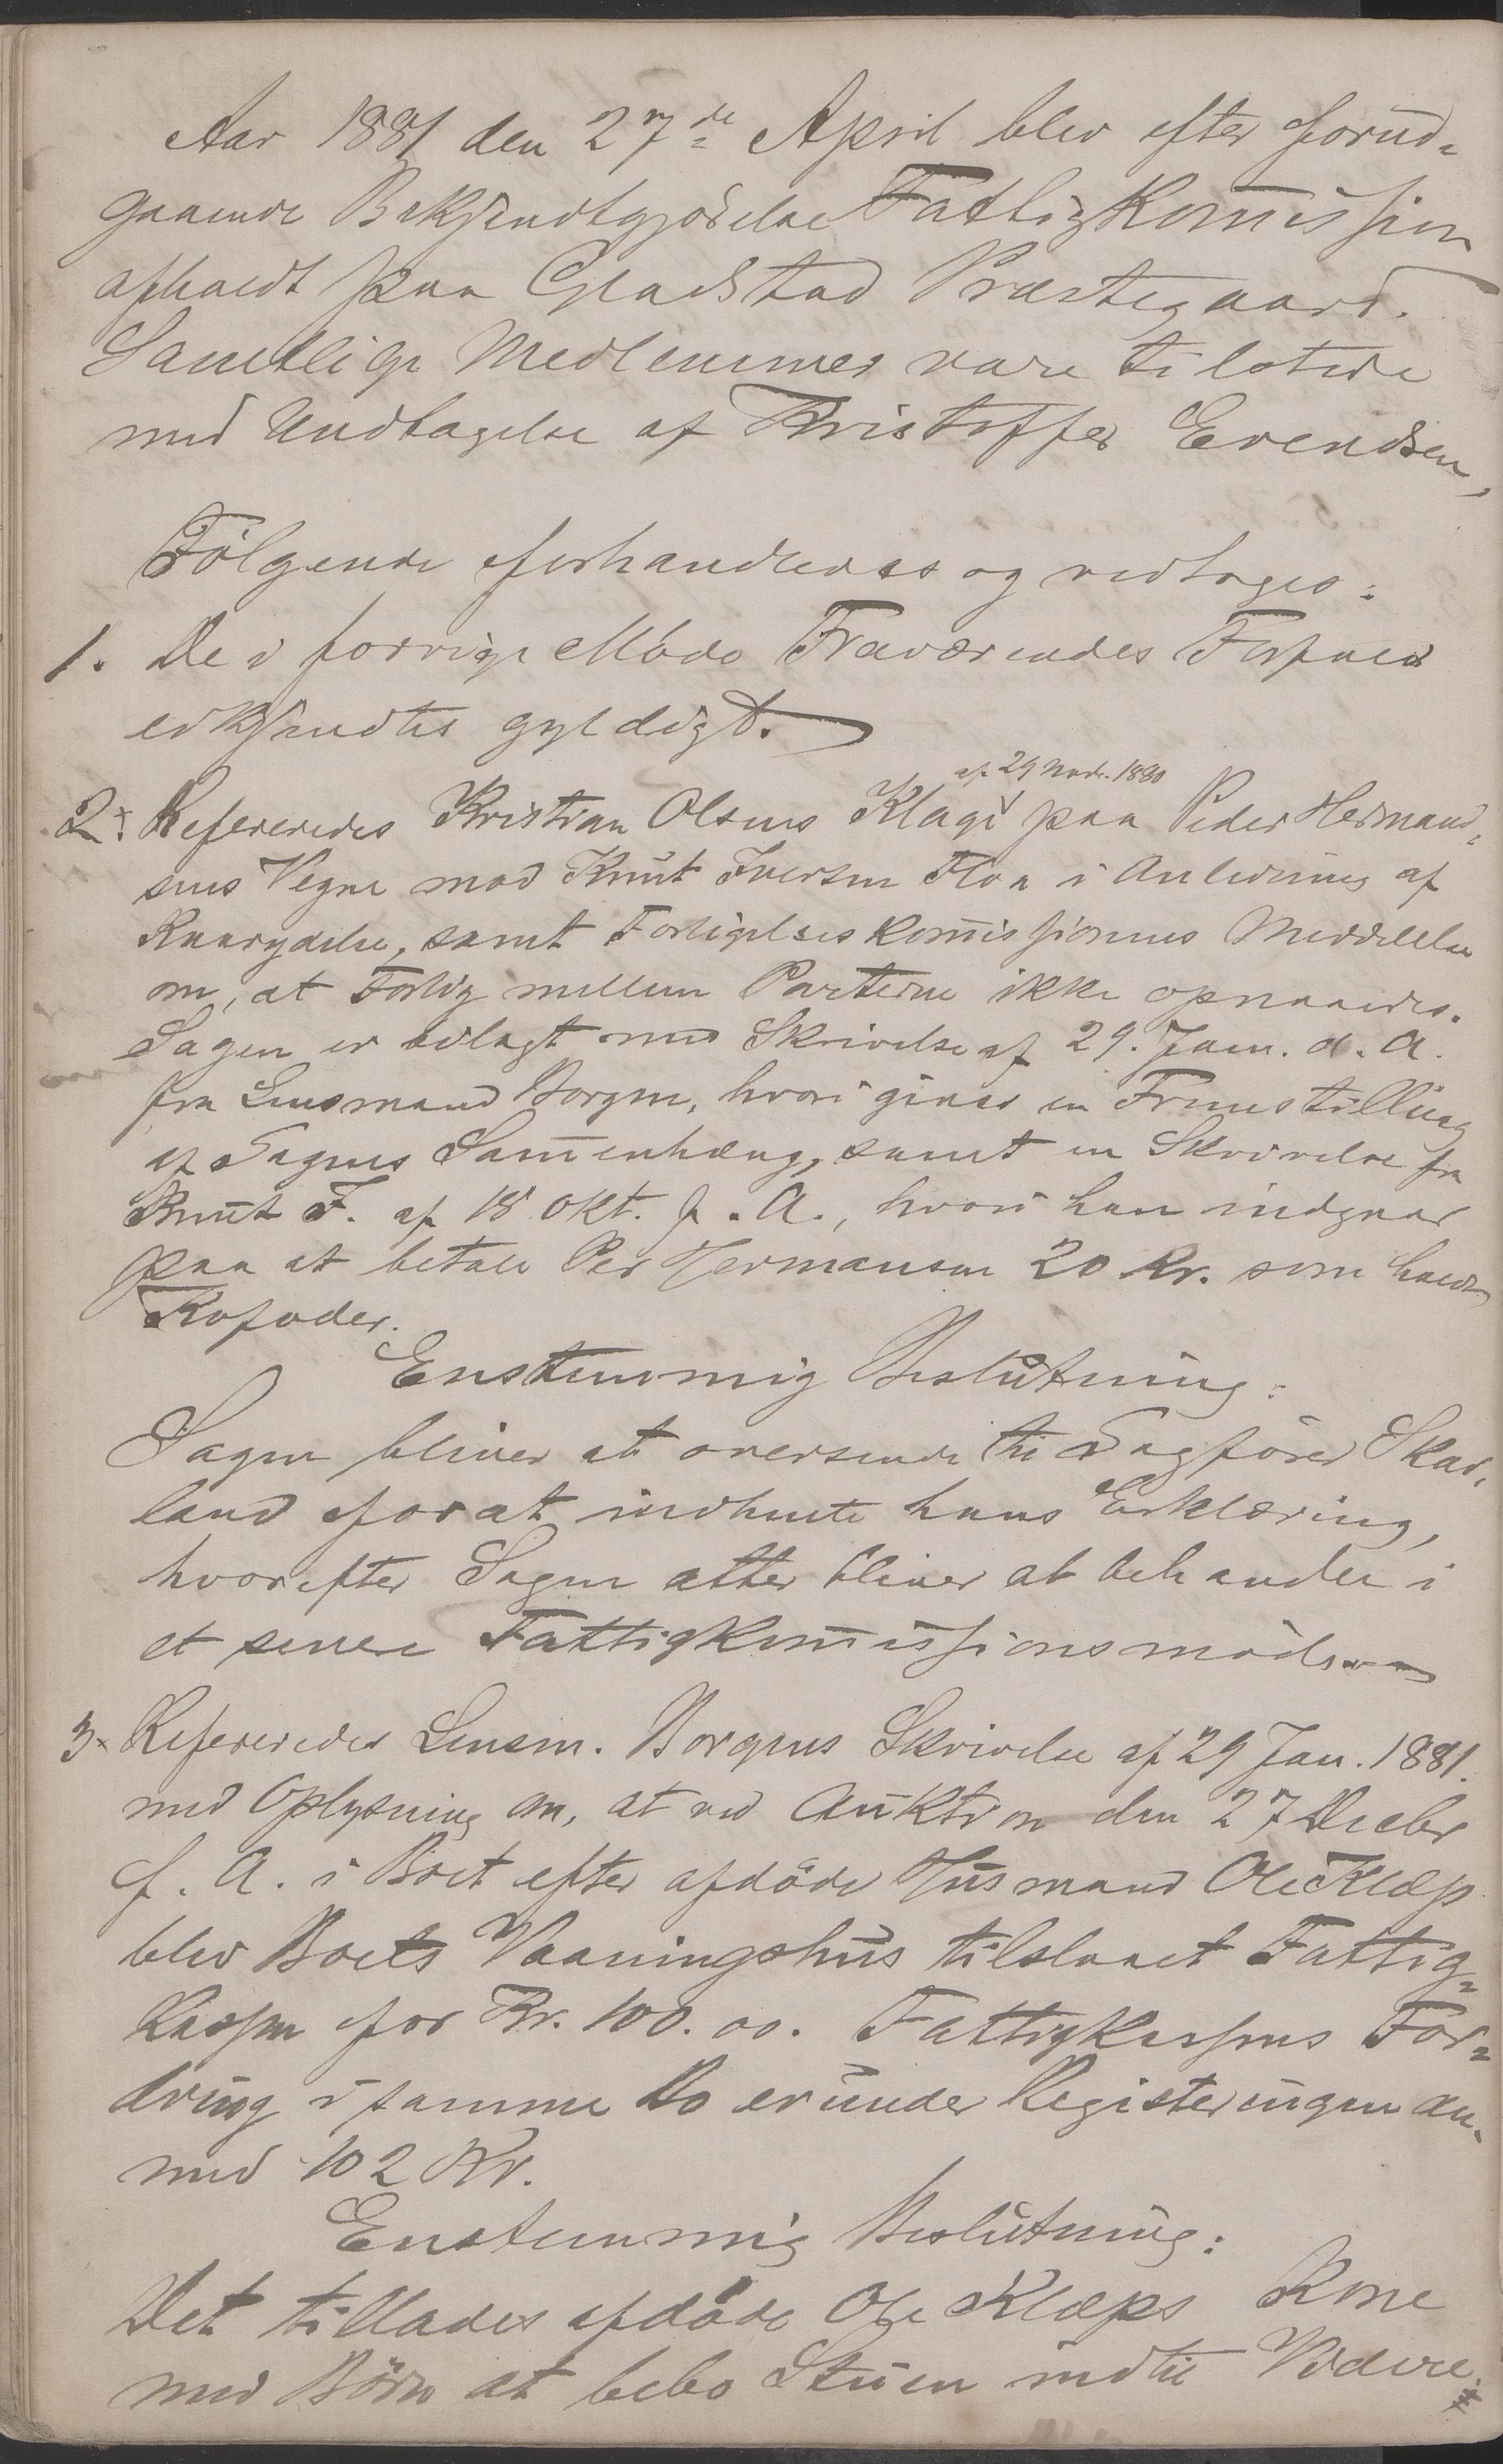 Aar 1881 den 27de April blev efter forud-
gaaende Bekjendtgjørelse Fattigkommission
afholdt paa Gladstad Præstegaard.
Samtlige Medlemmer vare tilstede
med Undtagelse af Kristoffer Evendsen,
Følgende forhandledes og vedtoges:
1. De i forrige Møde Fraværendes Forfald
erkjendtes gyldigt.
af 29 Novbr. 1880
2. Refereredes Kristian Olsens Klage paa Peder Hermand-
sens Vegne mod Knut Iversen Floa i Anledning af
samt Forligelseskommissionens Meddelelse
om, at Forlig mellem Parterne ikke opnaaedes.
Sagen er bilagt med Skrivelse af 29. Jan. d. A.
fra Lensmand Borgen, hvori gives en Fremstilling
af Sagens Sammenhæng, samt en Skrivelse fra
Knut F. af 18 Okt. f. A., hvori han indgaar
paa at betale Per Hermansen 20 Kr. som hans
Enstemmig Beslutning:
Sagen bliver at oversende til Sagfører Skar-
land for at indhente hans Erklæring,
hvorefter Sagen atter bliver at behandle i
et senere Fattigkommissionsmøde.
3. Refereredes Lensm. Borgens Skrivelse af 29 Jan. 1881.
med Oplysning om, at ved Auktion den 27 Decbr
f. A. i Boet efter afdøde Husmand Ole Klæp
blev Boets Vaaningshus tilslaaet Fattig-
kassen for Kr. 100.00. Fattigkassens For-
dring i samme Bo er under Registeringen an-
med 102 Kr.
Enstemmig Beslutning:
Det tillades afdøde Ole Klæps Kone
med Børn at bebo Stuen indtil Videre